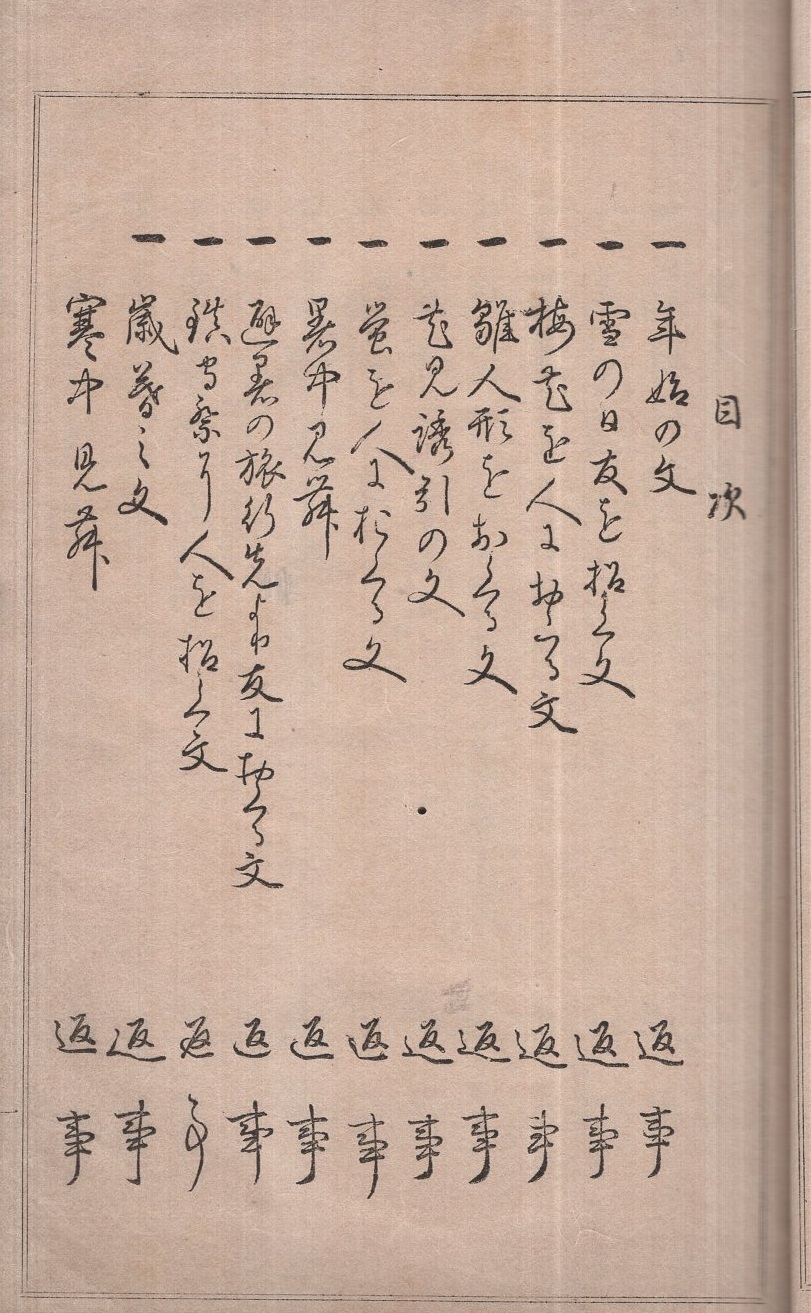 目次
一 年始の文 返事
一 雪の日友を招く文 返事
一 梅花を人におくる文 返事
一 雛人形をおくる文 返事
一 花見誘引の文 返事
一 蛍を人におくる文 返事
一 暑中見舞 返事
一 避暑の旅行先より友におくる文 返事
一 鎮守祭に人を招く文 返事
一 歳暮之文 返事
寒中見舞 返事